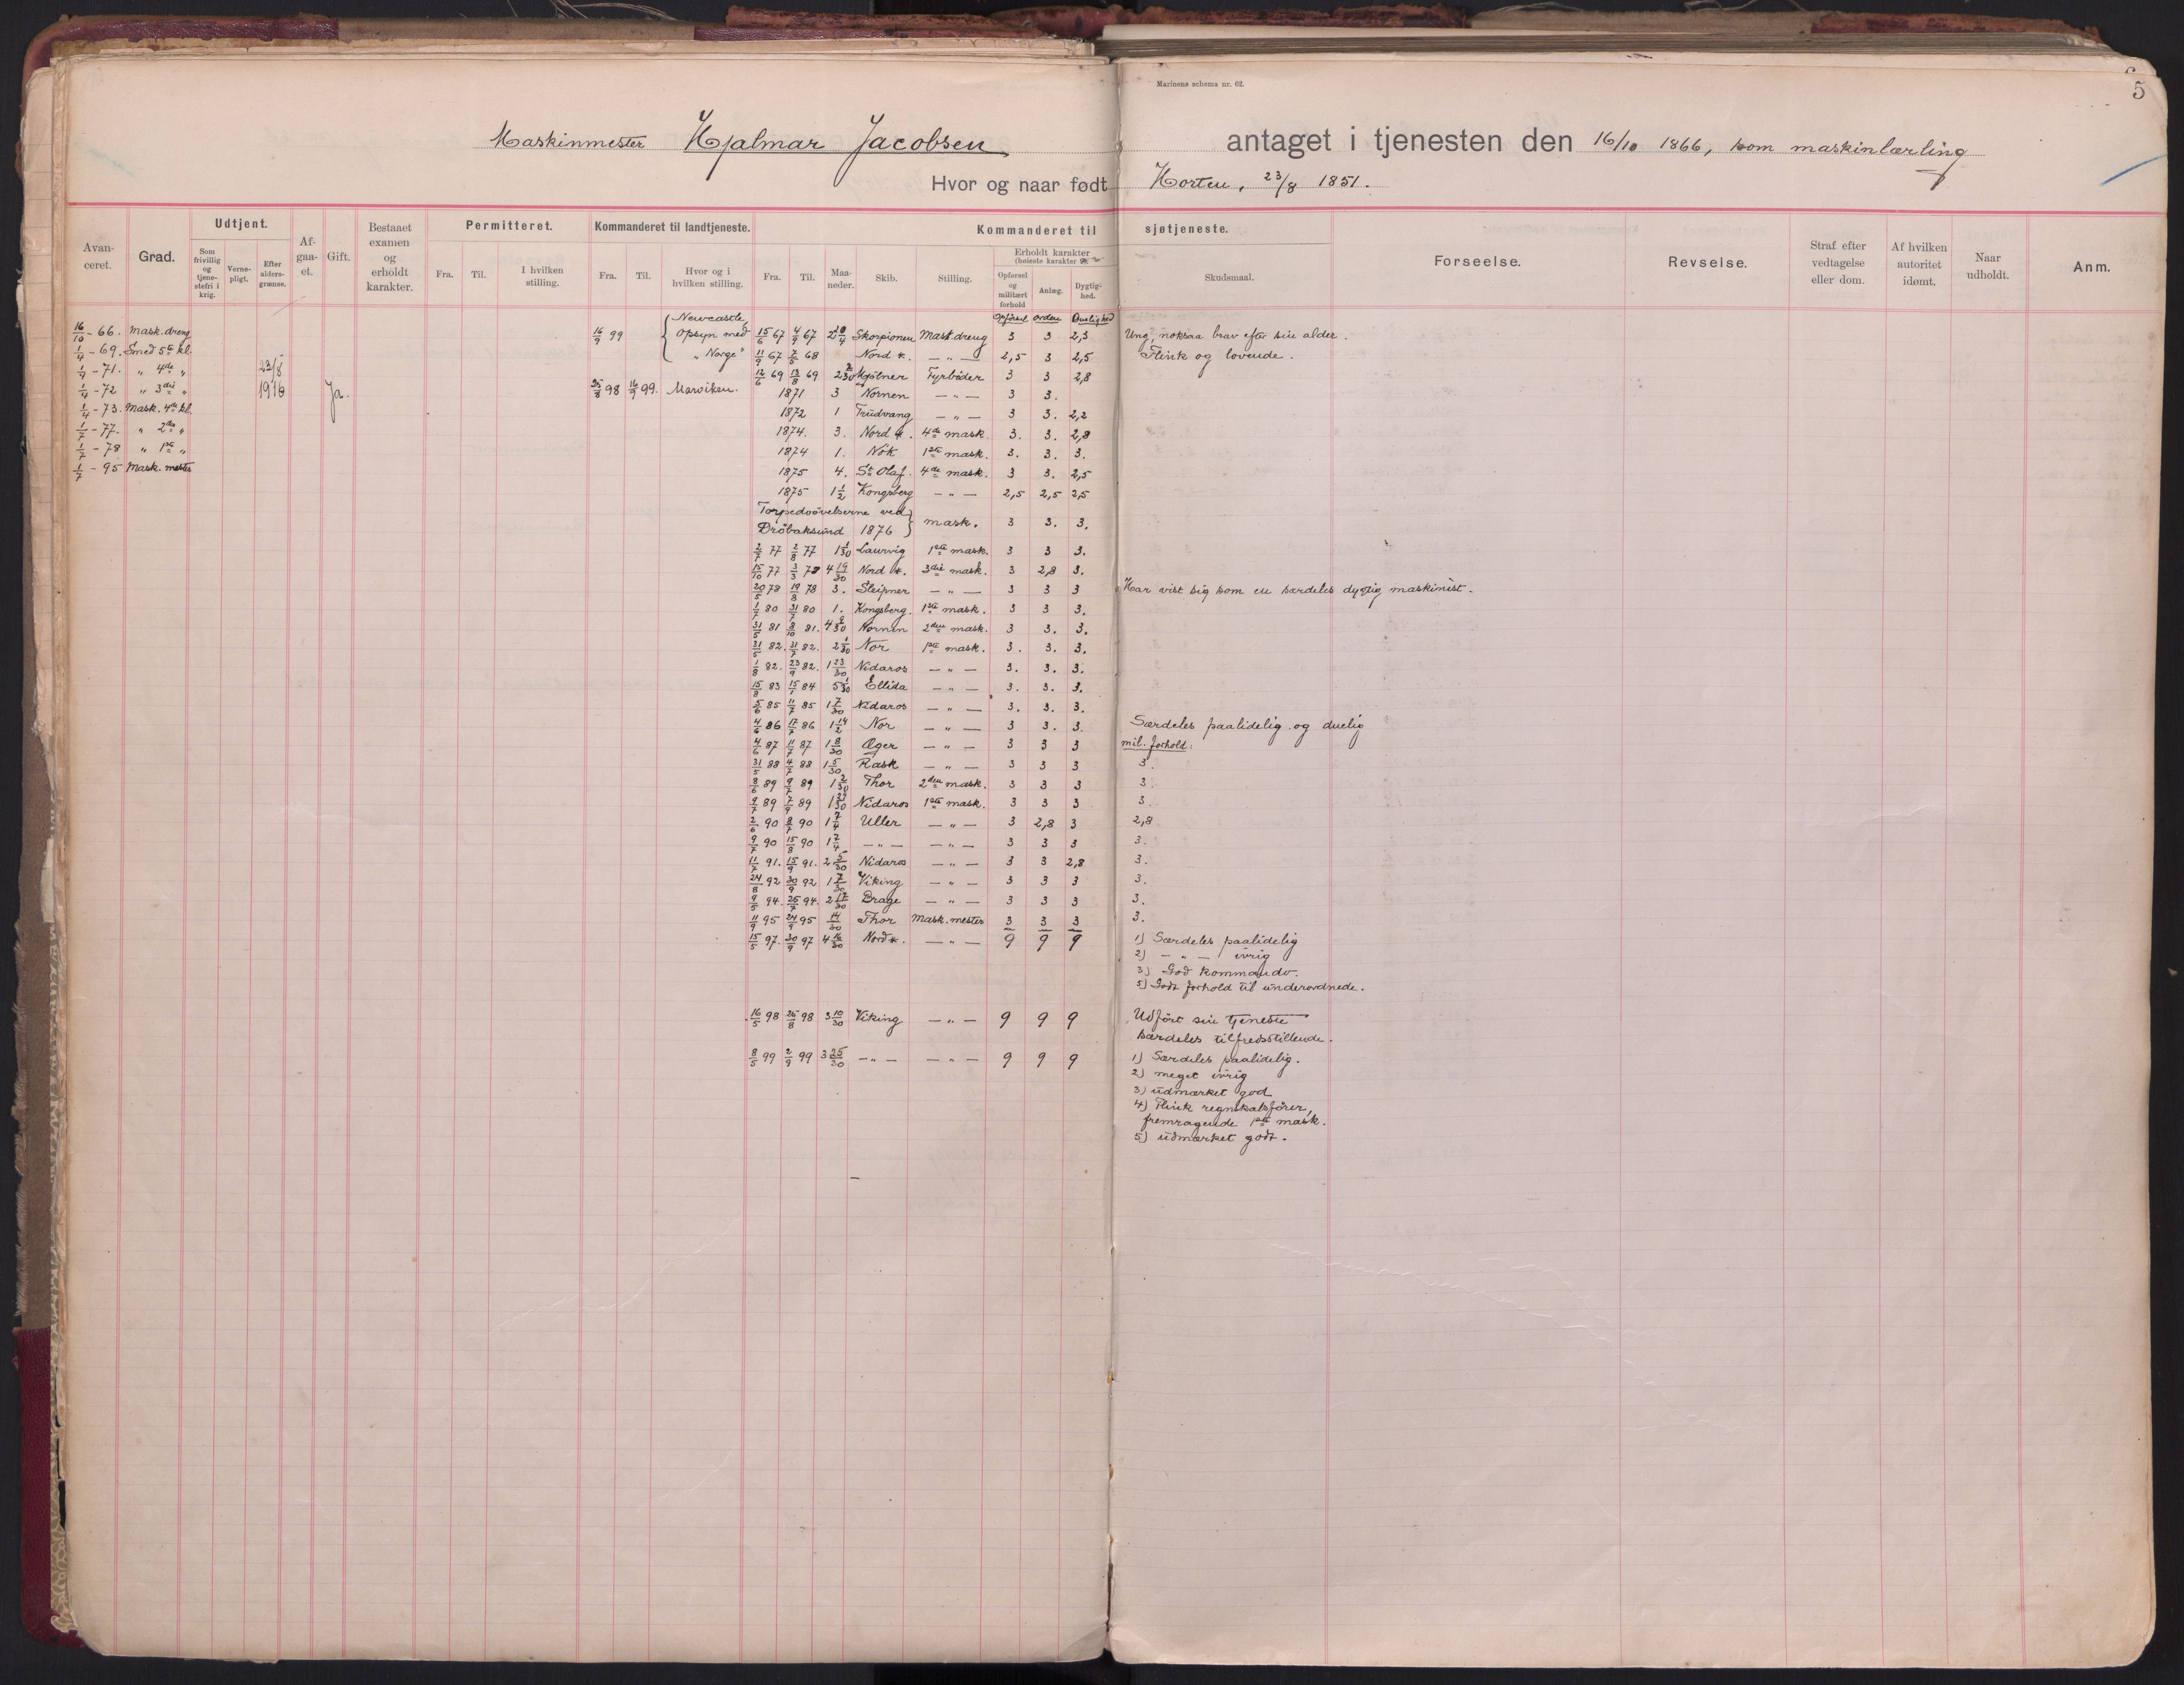 Marinens schema nr. 62.
5
Maskinmester Hjalmar Jacobsen antaget i tjenesten den 16/10 1866, som maskinlærling
Hvor og naar født Horten, 23/8 1851.
Avanceret. Grad. Udtjent. Afgaaet. Gift. Bestaaet examen og erholdt karakter. Permitteret. Kommanderet til landtjeneste. Kommanderet til sjøtjeneste. Forseelse. Revselse. Straf efter vedtagelse eller dom. Af hvilken autoritet idømt. Naar udholdt. Anm.
Som frivillig og tjenestefri i krig. Vernepligt. Efter aldersgrænse.
Fra. Til. I hvilken stilling.
Fra. Til. Hvor og i hvilken stilling.
Fra. Til. Maaneder. Skib. Stilling. Erholdt karakter (høieste karakter Skudsmaal.
Opførsel og militært forhold Anlæg. Dygtighed.
Opførsel Orden Duelighed
16/10 - 66. Mask. dreng
1/4 - 69. Smed 5te kl.
1/4 - 71. " 4de "
1/4 - 72 " 3die "
1/4 - 73. Mask. 4de kl.
1/7 - 77. " 2den "
1/7 - 78 " 1ste "
1/7 - 95 Mask. mester
23/8
1916
Ja.
16/9 99 Newcastle,
Opsyn med
"Norge"
25/8 98 16/9 99. Marviken.
15/6 67 4/9 67 2 20/4 Skorpionen Mask. dreng 3 3 2,3 Ung, noksaa brav efter sin alder.
11/9 67 7/5 68 Nord *. — " — 2,5 3 2,5 Flink og lovende.
12/6 69 13/8 69 2 2/30 Mjølner Fyrbøder 3 3 2,8
1871 3 Nornen — " — 3 3.
1872 1 Trudvang — " — 3 3. 2,2
1874. 3. Nord *. 4de mask. 3. 3. 2,8
1874 1. Nøk 1ste mask. 3. 3. 3.
1875 4. St Olaf. 4de mask. 3 3. 2,5
1875 1 1/2 Kongsberg — " — 2,5 2,5 2,5
Torpedoøvelserne ved
Drøbaksund 1876 } mask. 3 3. 3.
2/7 77 2/8 77 1 1/30 Laurvig 1ste mask. 3 3 3.
15/10 77 3/3 78 4 19/30 Nord *. 3die mask. 3 2,8 3.
20/5 78 19/8 78 3. Sleipner — " — 3 3 3 Har vist sig som en særdeles dygtig maskinist.
1/7 80 31/7 80 1. Kongsberg. 1ste mask. 3 3 3.
31/5 81 8/10 81. 4 9/30 Nornen 2den mask. 3 3. 3.
31/5 82. 31/7 82. 2 1/30 Nor 1ste mask. 3. 3. 3.
1/8 82. 23/9 82. 1 23/30 Nidaros — " — 3. 3. 3.
15/8 83 15/1 84 5 1/30 Ellida — " — 3. 3. 3.
5/6 85 11/7 85 1 7/30 Nidaros — " — 3. 3. 3.
4/6 86 17/7 86 1 14/2 Nor — " — 3 3. 3. Særdeles paalidelig og duelig
4/6 87 11/7 87 1 8/30 Æger — " — 3 3 3 mil. forhold:
31/5 88 4/7 88 1 5/30 Rask — " — 3 3 3 3.
8/6 89 9/7 89 1 2/30 Thor 2den mask. 3 3 3 3.
9/7 89 7/9 89 1 29/30 Nidaros 1ste mask. 3 3 3 3.
2/6 90 8/7 90 1 7/4 Uller — " — 3 2,8 3 2,8
9/7 90 15/8 90 1 7/4 — " — — " — 3 3 3 3.
11/7 91. 15/9 91. 2 5/30 Nidaros — " — 3 3 2,8 3.
24/8 92 30/9 92 1 7/30 Viking — " — 3 3 3 3.
9/5 94. 25/7 94. 2 17/30 Brage — " — 3 3 3 3.
11/9 95 24/9 95 14/30 Thor Mask. mester 3 3 3 3.
15/5 97. 30/9 97 4 16/30 Nord *. — " — 9 9 9 1) Særdeles paalidelig
2) — " — ivrig
3) God kommando.
5) Godt forhold til underordnede.
16/5 98 25/8 98 3 10/30 Viking — " — 9 9 9 Udført sin tjeneste
særdeles tilfredsstillende.
8/5 99 2/9 99 3 25/30 — " — — " — 9 9 9 1) Særdeles paalidelig.
2) meget ivrig
3) udmærket god
4) Flink regnskabsfører,
fremragende 1ste mask.
5) udmærket godt.